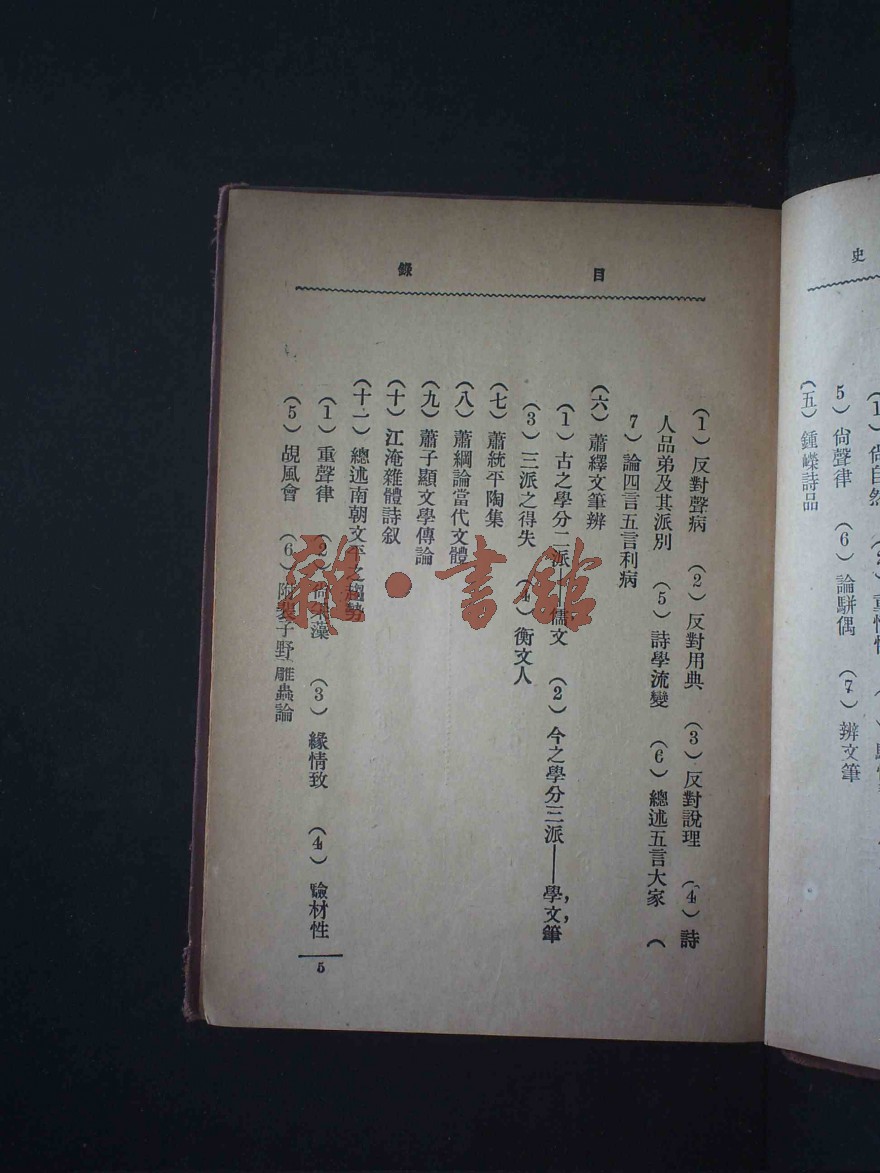 史
(1)尙自然
5)尙聲律 (6)論駢偶 (7)辨文筆
(五)鍾嶸詩品
目錄
(1)反對聲病 (2)反對用典 (3)反對說理 (4)詩
人品弟及其派別 (5)詩學流變 (6)總述五言大家 (
7)論四言五言利病
(六)蕭繹文筆辨
(1)古之學分二派——儒文 (2)今之學分三派——學,文,筆
(3)三派之得失 (4)衡文人
(七)蕭統平陶集
(八)蕭綱論當代文體
(九)蕭子顯文學傳論
(十)江淹雜體詩叙
(十一)總述南朝文平之趨勢
(1)重聲律 (2)尙采藻 (3)緣情致 (4)驗材性
(5)覘風會 (6)附裴子野雕蟲論
5
雜·書館